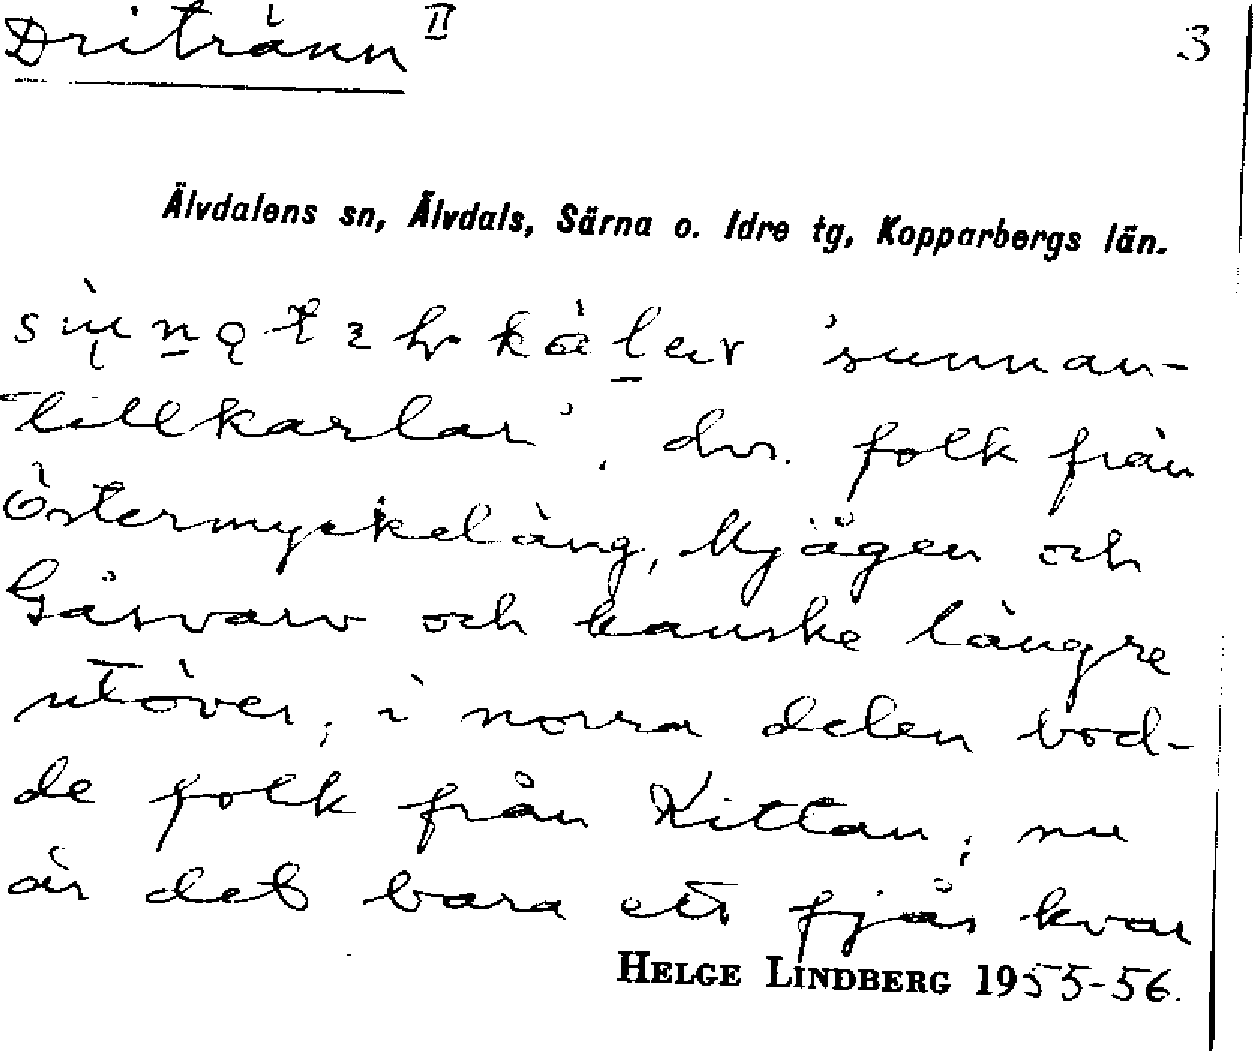 Dritränn II 3
Älvdalens sn, Älvdals, Särna o. Idre tg, Kopparbergs län.
'sunnan-
tillkarlar', dvs. folk från
Östermyckeläng, Mjågen och
Gåsvarv och kanske längre
utöver; i norra delen bod-
de folk från Kittan; nu
är det bara ett fjås kvar
HELGE LINDBERG 1955-56.